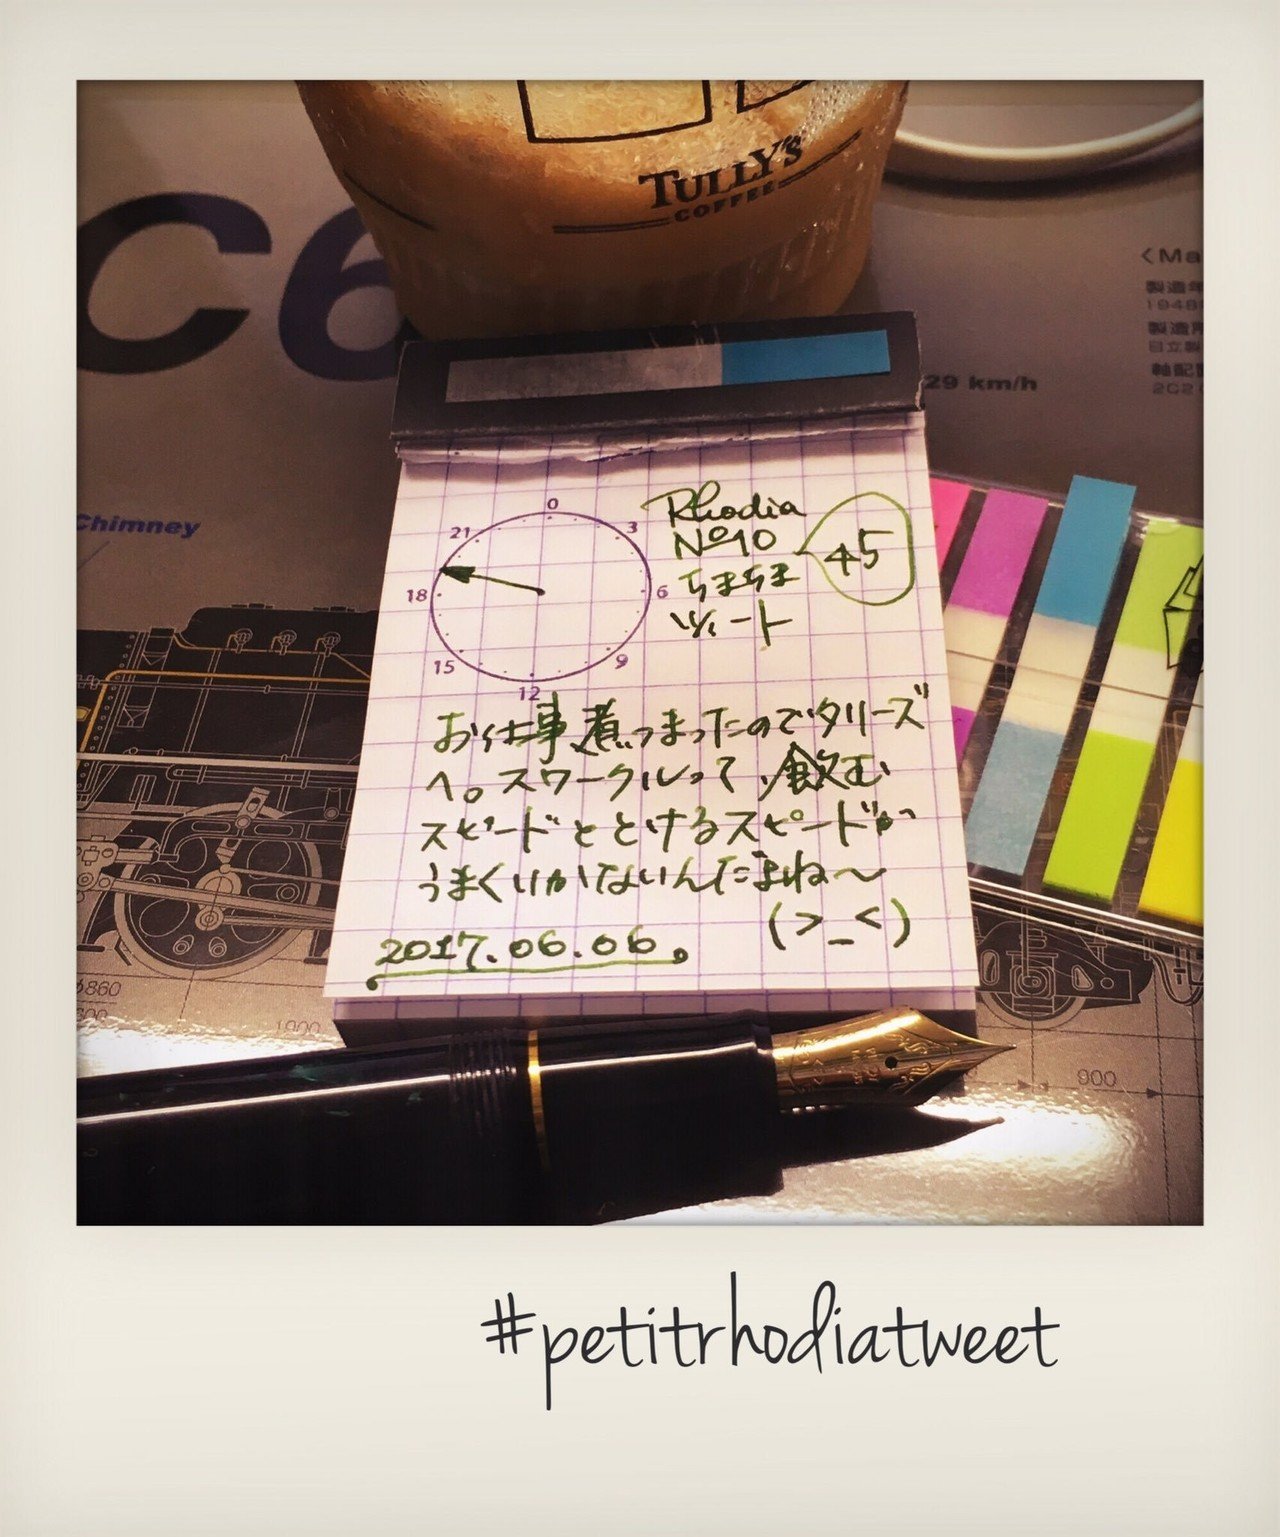 TULLY'S
COFFEE
C6
<Ma
製造年
1948
製造所
日立製
軸配置
2C2
29 km/h
Chimney
0
3
6
9
12
15
18
21
Rhodia
Nº10
ちまちま
ツイート
45
お仕事煮つまったのでタリーズ
へ。スワークルって飲む
スピードととけるスピードが
うまくいかないんだよね〜
(>_<)
2017.06.06.
φ860
1900
900
#petitrhodiatweet